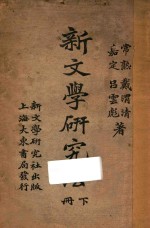 常熟戴渭清
嘉定呂雲彪
著
新文學研究法
下
冊
新文學研究社出版
上海大東書局發行